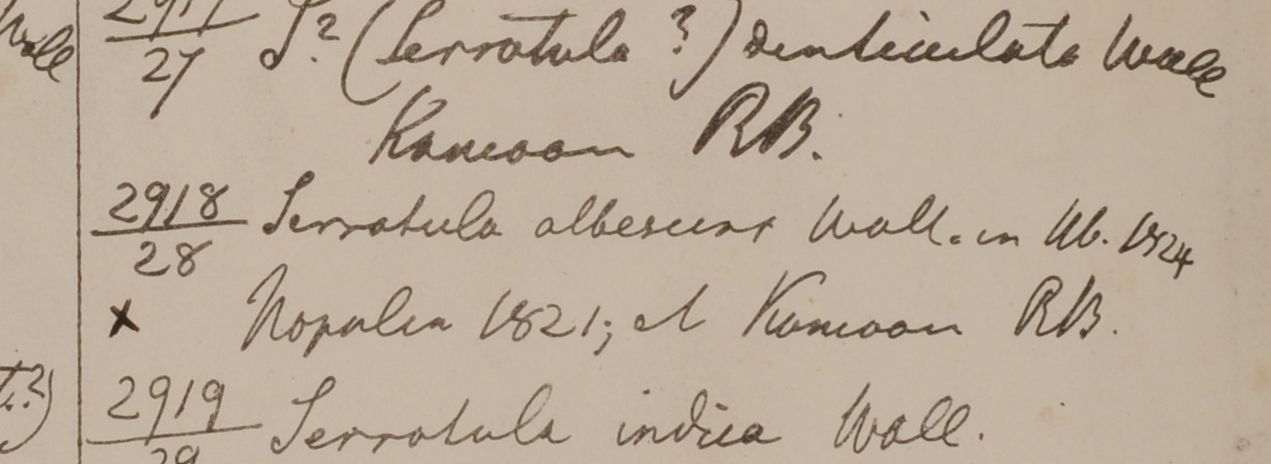 Wall
2917
27 S? (Serratula ?) denticulata Wall
Kamoon RB.
2918 Serratula albescens Wall. in hb. 1824
28
x Napalia 1821; et Kamoon RB.
t.?) 2919 Serratula indica Wall.
29